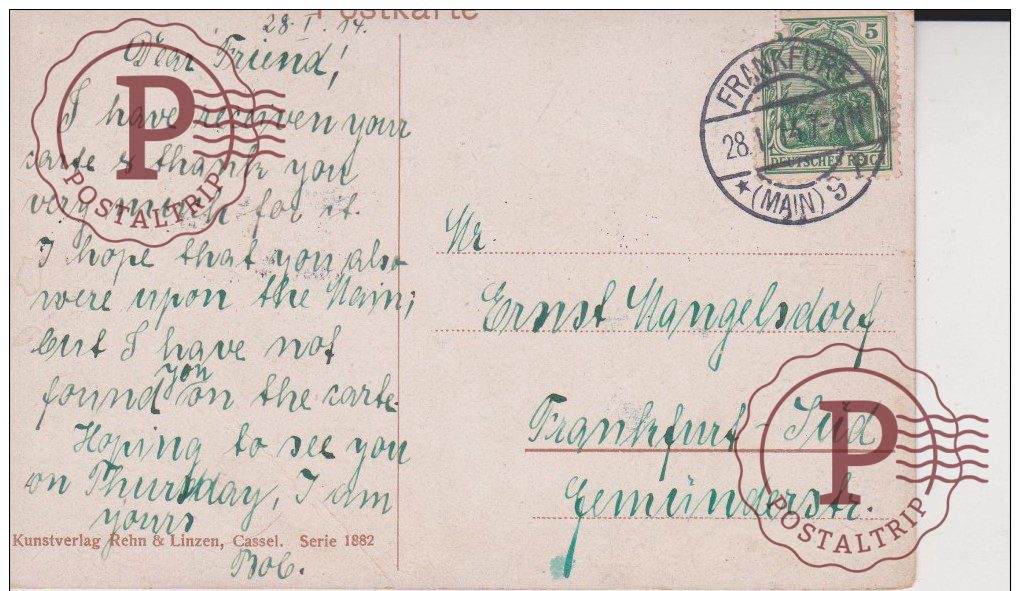 Postkarte
28. I. 14.
Dear Friend!
I have receiven your
carte & thank you
very much for it.
I hope that you also
were upon the Main;
but I have not
found you on the carte.
Hoping to see you
on Thursday, I am
yours
Bob.
Kunstverlag Rehn & Linzen, Cassel. Serie 1882
FRANKFURT
28.1.14. 7-8 N
★ (MAIN) 9
5
DEUTSCHES REICH
Mr.
Ernst Mangelsdorf
Frankfurt - Süd
Gemünderstr.
P
POSTALTRIP
P
POSTALTRIP